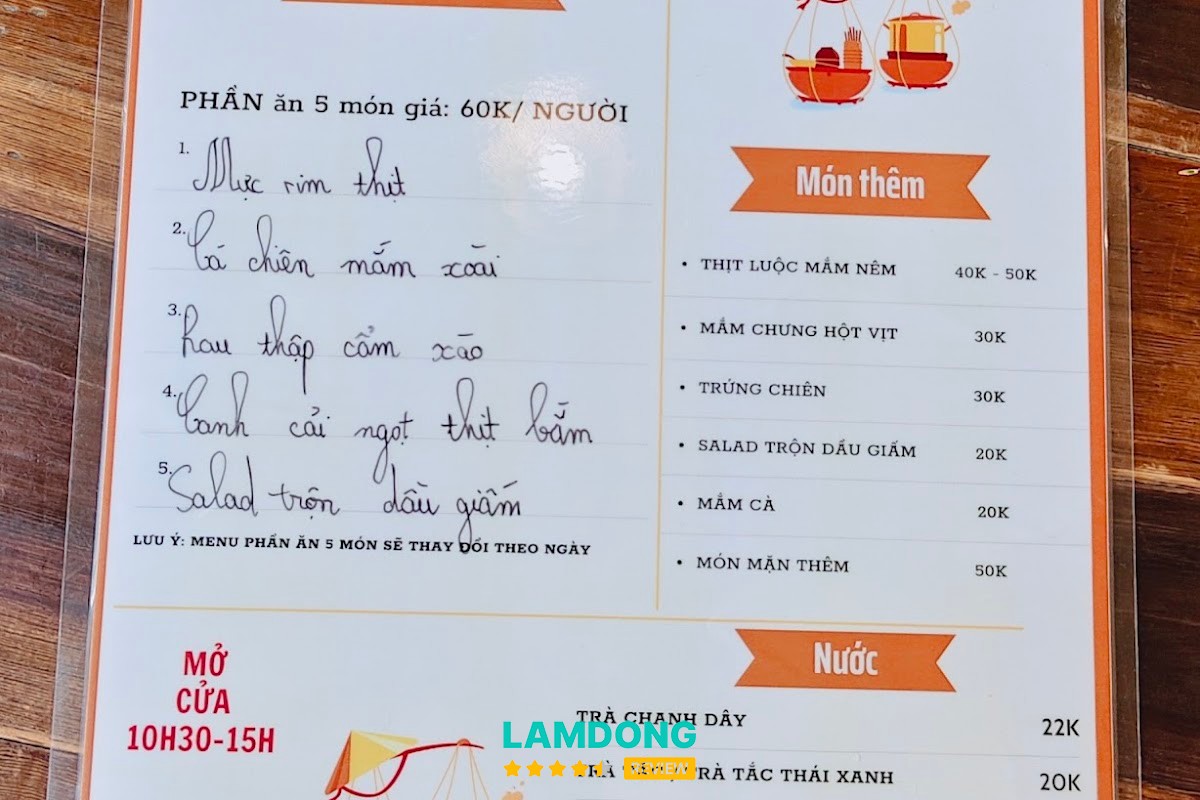 PHẦN ăn 5 món giá: 60K/ NGƯỜI
1. Mực rim thịt
2. Cá chiên mắm xoài
3. Rau thập cẩm xào
4. Canh cải ngọt thịt bằm
5. Salad trộn dầu giấm
LƯU Ý: MENU PHẦN ĂN 5 MÓN SẼ THAY ĐỔI THEO NGÀY
MỞ
CỬA
10H30-15H
Món thêm
• THỊT LUỘC MẮM NÊM 40K - 50K
• MẮM CHƯNG HỘT VỊT 30K
• TRỨNG CHIÊN 30K
• SALAD TRỘN DẦU GIẤM 20K
• MẮM CÀ 20K
• MÓN MẶN THÊM 50K
Nước
TRÀ CHANH DÂY 22K
TRÀ TẮC THÁI XANH 20K
LAMDONG
REVIEW